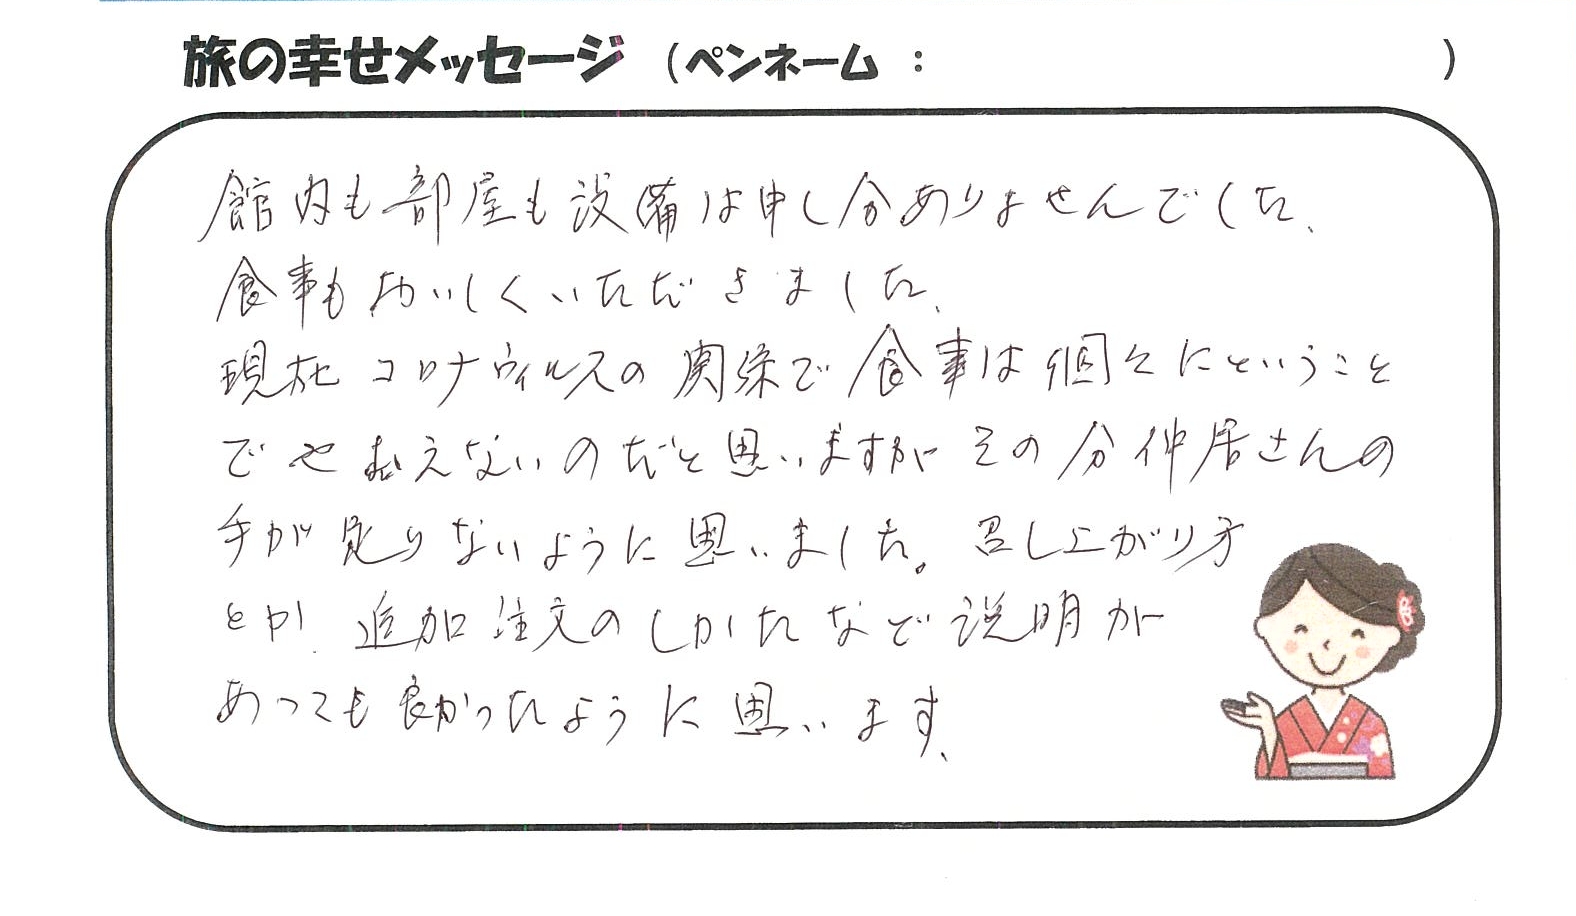 旅の幸せメッセージ (ペンネーム : )
館内も部屋も設備は申し分ありませんでした、
食事もおいしくいただきました、
現在コロナウィルスの関係で食事は個々にということ
でやむえないのだと思いますがその分仲居さんの
手が足りないように思いました。召し上がり方
とか、追加注文のしかたなど説明が
あっても良かったように思います、